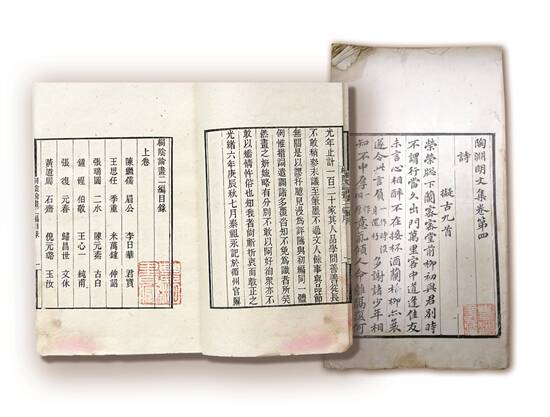 陶淵明文集卷第四
詩
擬古九首
榮榮牕下蘭密密堂前柳初與君別時
不謂行當久出門萬里客中道逢佳友
未言心相醉不在接杯酒蘭枯柳亦衰
遂令此言負 多謝諸少年相
知不中厚 意氣傾人命離隔復何
光年止計一百二十家其人品學問善善從長
不敢稍參未議至筆墨不過文人餘事與品節
無關是以謬抒臆見漫爲評隲與初編同一體
例惟搜羅遺闕諸多覆沓知不免爲識者所笑
然畫之妍媸略有分別不敢以阿好 衆亦不
敢以矯情忤俗也知我者尚祈 而敎正之
光緒六年庚辰秋七月秦祖永記於衢州官廨
桐陰論畫二編目錄
上卷
陳繼儒 眉公 李日華 君實
王思任 季重 米萬鍾 仲詔
張瑞圖 二水 陳元素 古白
鍾惺 伯敬 王心一 純甫
張復 元春 歸昌世 文休
黃道周 石齋 倪元璐 玉汝